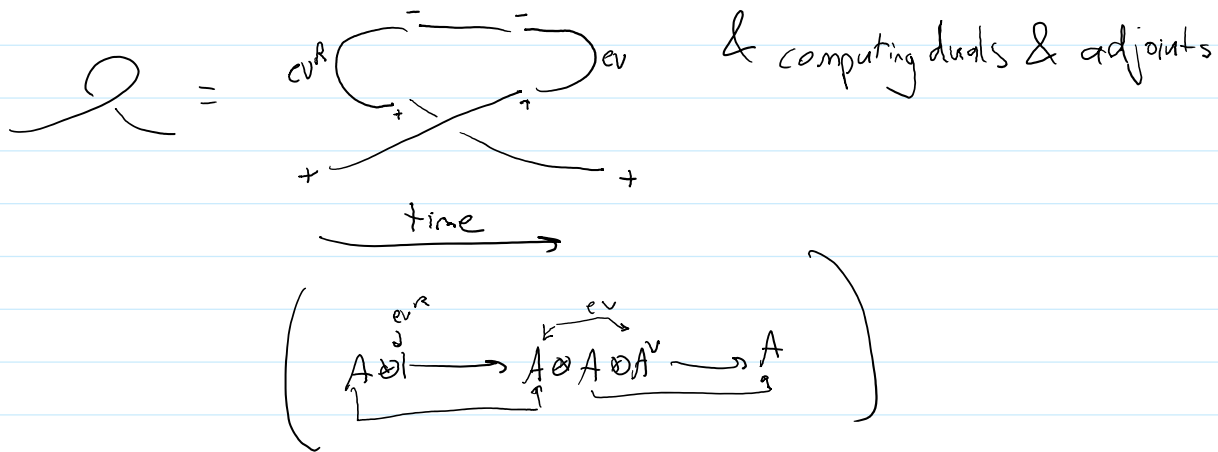 − −
ev^R ev & computing duals & adjoints
=
+ +
+ +
time
ev^R ev
( A ⊗ 1 ⟶ A ⊗ A ⊗ A^∨ ⟶ A )